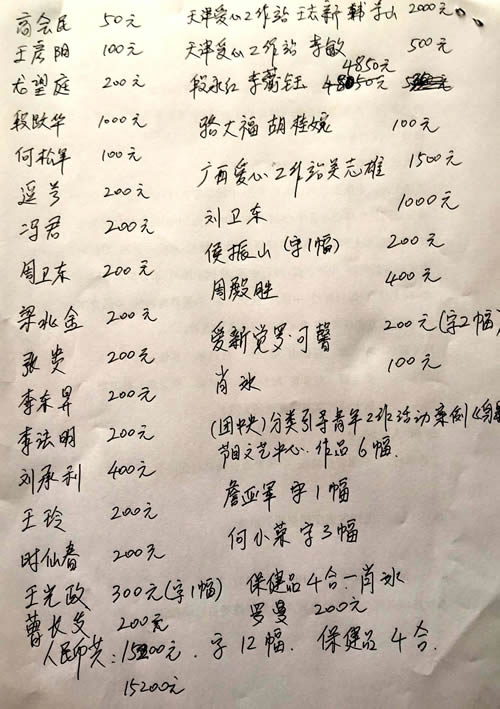 商会民 50元
王彦阳 100元
尤望庭 200元
段跃华 1000元
何松年 100元
遥兮 200元
冯君 200元
周卫东 200元
梁兆金 200元
张贵 200元
李东昇 200元
李法明 200元
刘承利 400元
王玲 200元
时仙春 200元
王光政 300元(字1幅)
曹长安 200元
天津爱心工作站 王志新 韩李山 2000元
天津爱心工作站 李敏 500元
段永红 李 钰 4850元
骆大福 胡桂婉 100元
广西爱心工作站吴志雄 1500元
刘卫东 1000元
侯振山(字1幅) 200元
周殿胜 400元
爱新觉罗·可馨 200元(字2幅)
肖冰 100元
(团中央)分类引导青年工作活动案例《
节目文艺中心 作品6幅.
詹亚军 字1幅
何小菜 字3幅
保健品4合一肖冰
罗曼 200元
人民币共:15200元. 字12幅. 保健品4合.
15200元